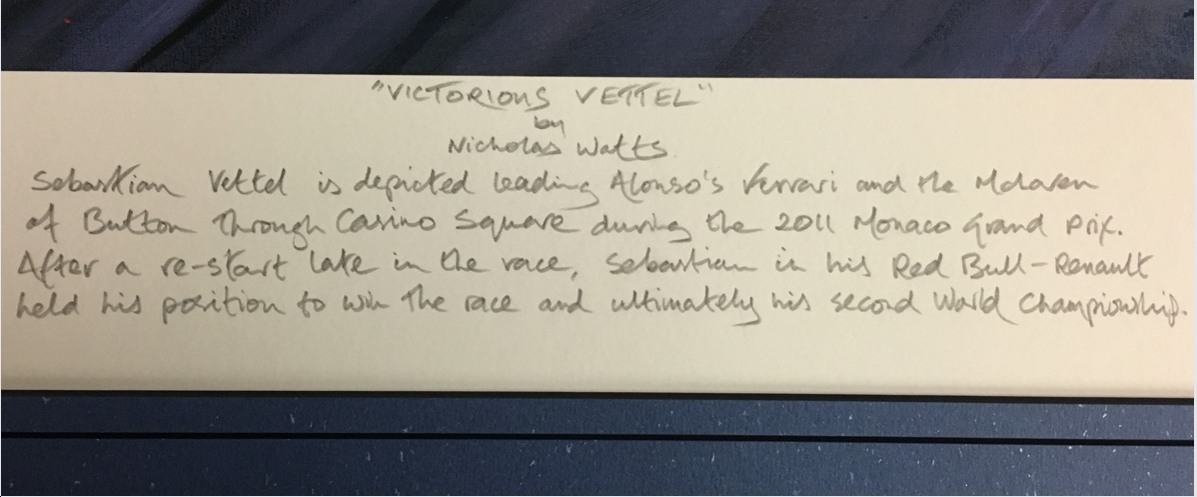 "VICTORIOUS VETTEL"
by
Nicholas Watts
Sebastian Vettel is depicted leading Alonso's Ferrari and the McLaren
of Button through Casino Square during the 2011 Monaco Grand Prix.
After a re-start late in the race, Sebastian in his Red Bull-Renault
held his position to win the race and ultimately his second World Championship.